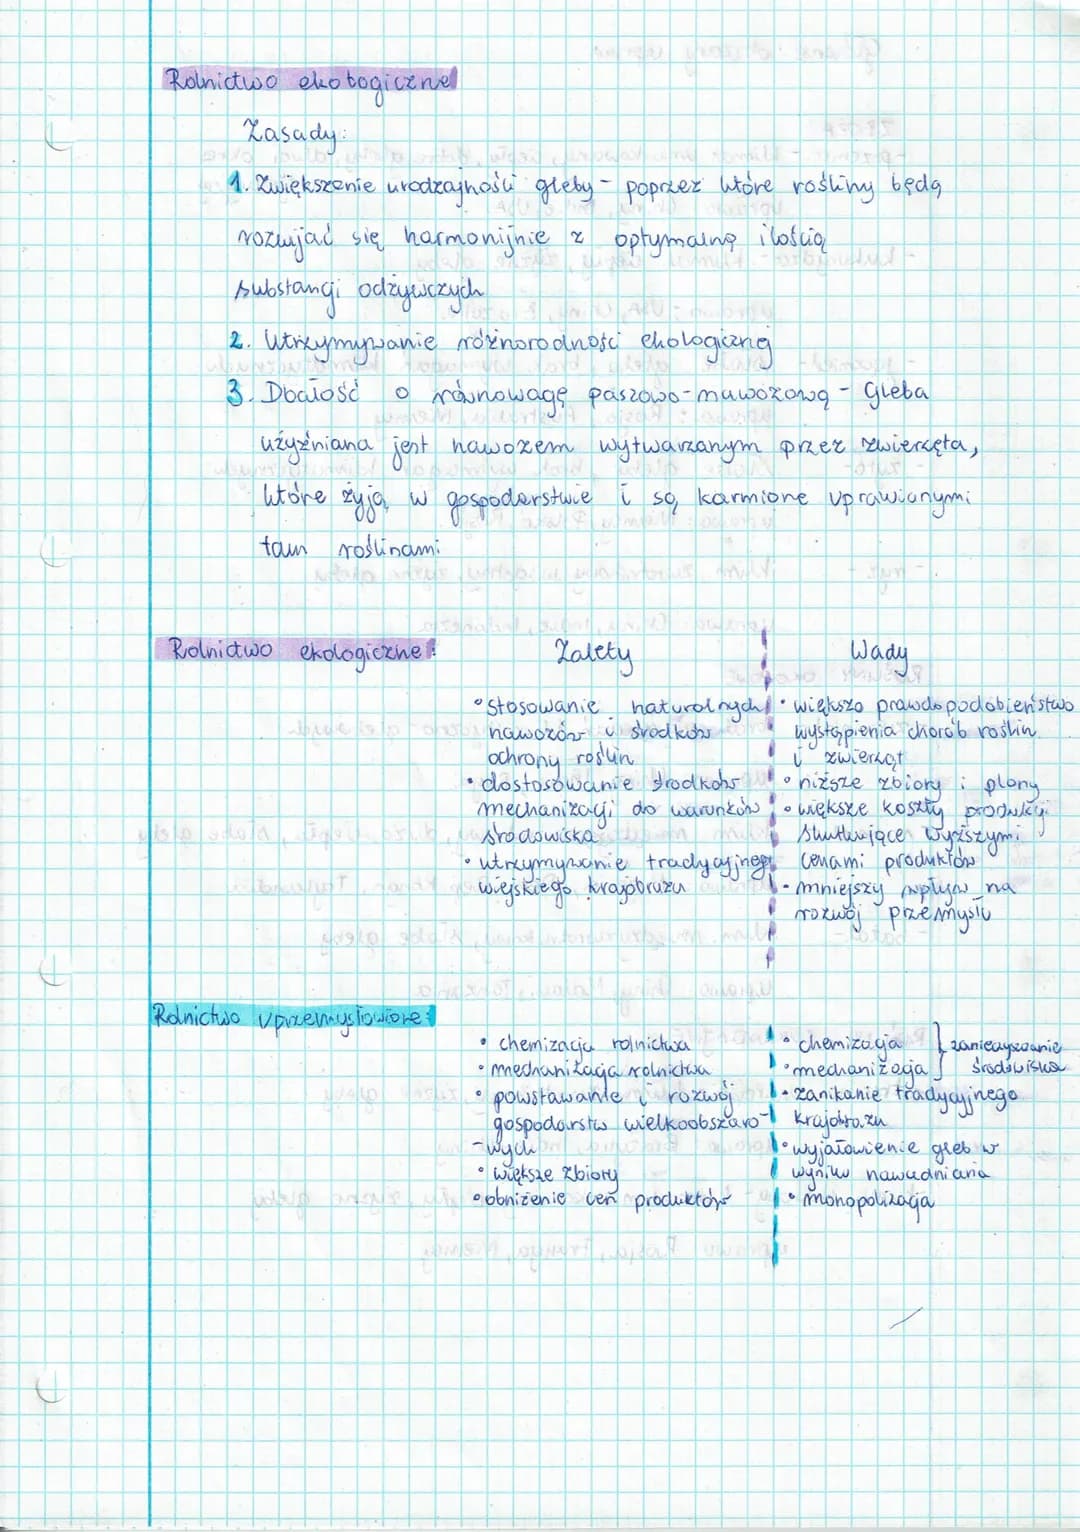 Rolnictwo ekologiczne
Zasady:
1. Zwiększenie urodzajności gleby - poprzez które rośliny będą
rozwijać się harmonijnie z optymalną ilością
substancji odżywczych
2. Utrzymywanie różnorodności ekologicznej
3. Dbałość o równowagę paszowo-nawozową - Gleba
użyźniana jest nawozem wytwarzanym przez zwierzęta,
które żyją w gospodarstwie i są karmione uprawianymi
tam roślinami
Rolnictwo ekologiczne:
Zalety
• Stosowanie naturalnych
nawozów i środków
ochrony roślin
• dostosowanie środków
mechanizacji do warunków
środowiska
• utrzymywanie tradycyjnego
wiejskiego krajobrazu
Wady
• większe prawdopodobieństwo
wystąpienia chorób roślin
i zwierząt
• niższe zbiory i plony
• większe koszty produkcji
skutkujące wyższymi
cenami produktów
• mniejszy wpływ na
rozwój przemysłu
Rolnictwo uprzemysłowione:
• chemizacja rolnictwa
• mechanizacja rolnictwa
• powstawanie i rozwój
gospodarstw wielkoobszaro-
-wych
• większe zbiory
• obniżenie cen produktów
• chemizacja } zanieczyszczanie
• mechanizacja } środowiska
• zanikanie tradycyjnego
krajobrazu
• wyjałowienie gleb w
wyniku nawadniania
• monopolizacja